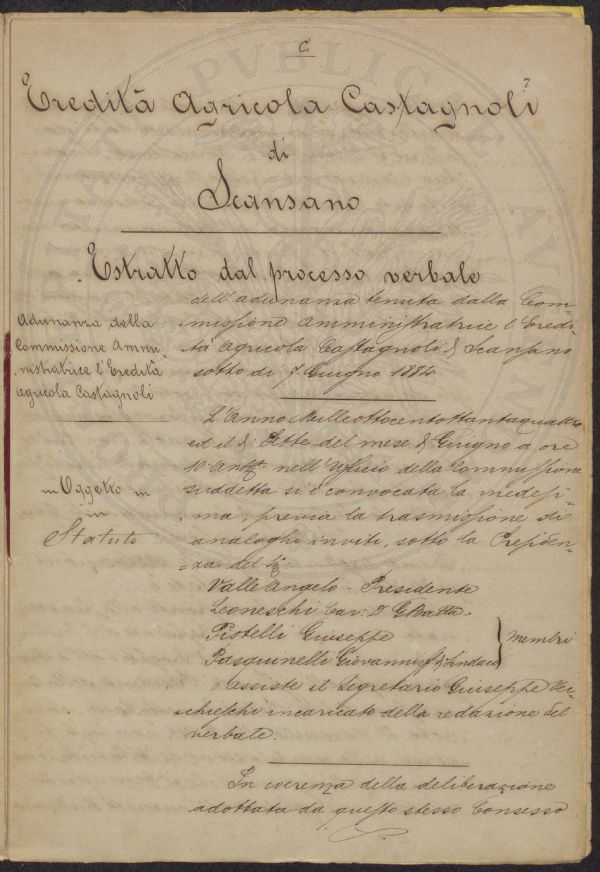 C
7
Eredità Agricola Castagnoli
di
Scansano
Estratto dal processo verbale
dell'adunanza tenuta dalla Com-
missione Amministratrice l'Eredi-
tà Agricola Castagnoli di Scansano
sotto di 7 Giugno 1884
Adunanza della
Commissione Ammi-
nistratrice l'Eredità
Agricola Castagnoli
L'Anno Milleottocentottantaquattro
ed il dì Sette del mese di Giugno a ore
10 Ant. nell'Ufficio della Commissione
suddetta si è convocata la medesi-
ma, previa la trasmissione di
analoghi inviti, sotto la Presiden-
za del
Oggetto
Statuto
Valle Angelo - Presidente
Leoneschi Cav: D. G. Batta
Pistelli Giuseppe
Pasquinelli Giovanni ff di Sindaco
Membri
assiste il Segretario Giuseppe Vec-
chieschi incaricato della redazione del
verbale.
In coerenza della deliberazione
adottata da questo stesso Consesso